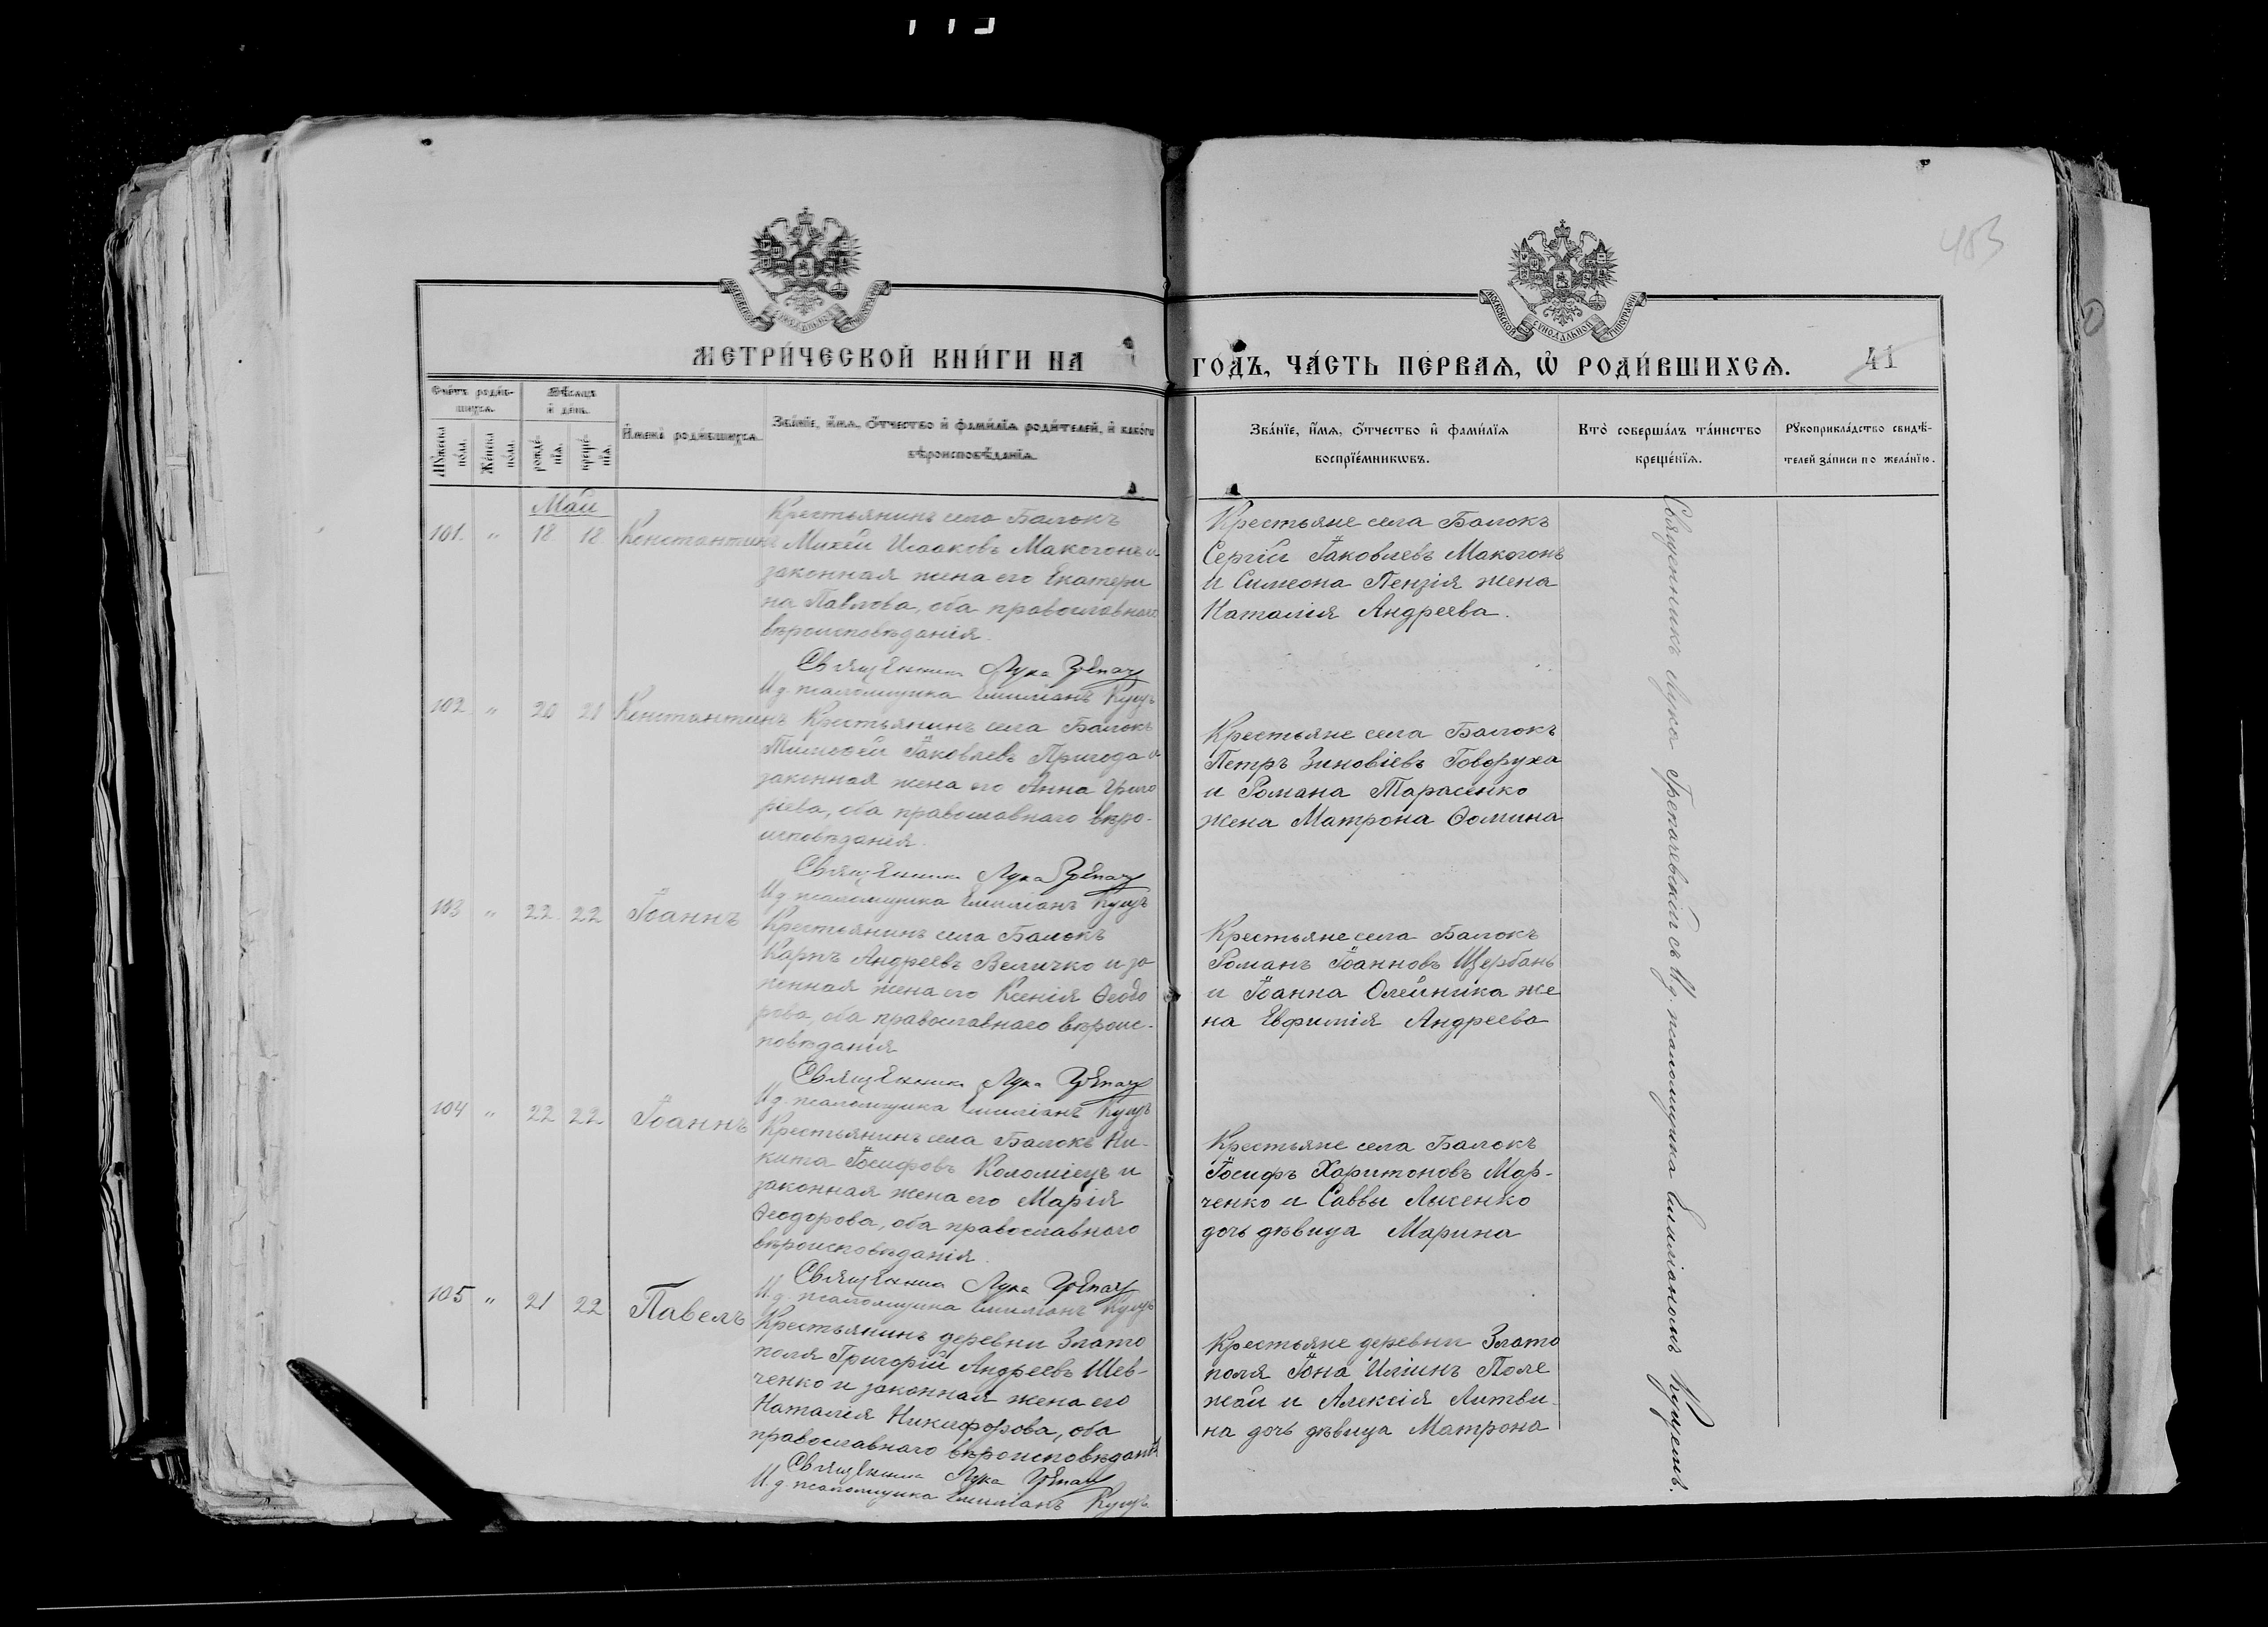 403
МЕТРИ́ЧЕСКОЙ КНИ́ГИ НА
ГО́ДЪ, ЧА́СТЬ ПЕ́РВАѦ, Ѡ҆ РОДИ́ВШИХСѦ.
41
МОСКОВСКОЙ СѴНОДАЛЬНОЙ ТИПОГРАФІИ
Сче́тъ роди́в-
шихсѧ.
Мѣ́сѧцъ
и҆ де́нь.
Мꙋ́жеска по́ла.
Же́нска по́ла.
рожде́-
нїѧ.
креще́-
нїѧ.
И҆мена̀ роди́вшихсѧ.
Зва́нїе, и҆́мѧ, ѻ҆́тчество и҆ фамѝлїѧ роди́телей, и҆ како́гѡ
вѣроисповѣ́данїѧ.
Зва́нїе, и҆́мѧ, ѻ҆́тчество и҆ фами́лїѧ
воспрїе́мникѡвъ.
Кто̀ соверша́лъ та́инство
креще́нїѧ.
Рꙋкоприкла́дство свидѣ́-
телей за́писи по жела́нїю.
Май
101. " 18 18 Константинъ
Крестьянинъ села Балокъ
Михей Исааковъ Макогонъ и
законная жена его Екатери
на Павлова, оба православнаго
вѣроисповѣданія.
Священникъ Лука Грепач
И. д. псаломщика Емиліанъ Куцъ
Крестьяне села Балокъ
Сергій Іаковлевъ Макогонъ
и Симеона Пензія жена
Наталія Андреева.
102 " 20 21 Константинъ
Крестьянинъ села Балокъ
Тимофей Іаковлевъ Пригода и
законная жена его Анна Григо
ріева, оба православнаго вѣро-
исповѣданія.
Священникъ Лука Грепач
И. д. псаломщика Емиліанъ Куцъ
Крестьяне села Балокъ
Петръ Зиновіевъ Говоруха
и Романа Тарасенко
жена Матрона Ѳомина
103 " 22 22 Іоаннъ
Крестьянинъ села Балокъ
Карпъ Андреевъ Величко и за
конная жена его Ксенія Ѳеодо
рова, оба православнаго вѣроис-
повѣданія
Священникъ Лука Грепач
И. д. псаломщика Емиліанъ Куцъ
Крестьяне села Балокъ
Романъ Іоанновъ Щербань
и Іоанна Олейника же
на Евфимія Андреева
104 " 22 22 Іоаннъ
Крестьянинъ села Балокъ Ни-
кита Іосифовъ Коломіецъ и
законная жена его Марія
Ѳеодорова, оба православнаго
вѣроисповѣданія.
Священникъ Лука Грепач
И. д. псаломщика Емиліанъ Куцъ
Крестьяне села Балокъ
Іосифъ Харитоновъ Мар-
ченко и Саввы Лысенко
дочь дѣвица Марина
105 " 21 22 Павелъ
Крестьянинъ деревни Злато
поля Григорій Андреевъ Шев-
ченко и законная жена его
Наталія Никифорова, оба
православнаго вѣроисповѣданія
Священникъ Лука Грепач
И. д. псаломщика Емиліанъ Куцъ.
Крестьяне деревни Злато
поля Іона Иліинъ Поле
жай и Алексія Литви-
на дочь дѣвица Матрона
Священникъ Лука Грепачевскій съ И. д. псаломщика Емиліаномъ Куцемъ.